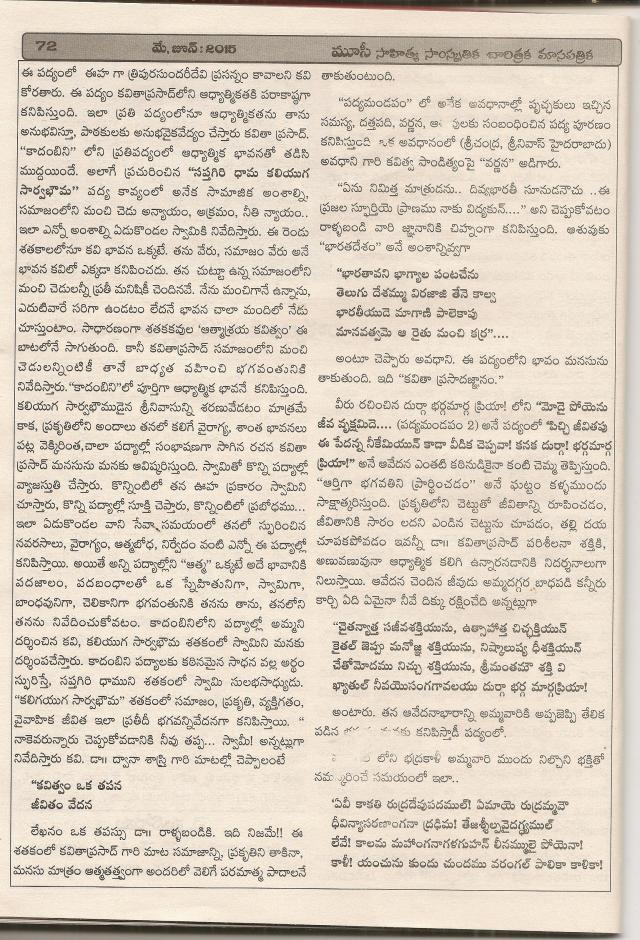 72
మే, జూన్ : 2015
మూసీ సాహిత్య సాంస్కృతిక చారిత్రక మాసపత్రిక
ఈ పద్యంలో ఈహ గా త్రిపురసుందరీదేవి ప్రసన్నం కావాలని కవి
కోరతారు. ఈ పద్యం కవితాప్రసాద్‌లోని ఆధ్యాత్మికతకి పరాకాష్ఠగా
కనిపిస్తుంది. ఇలా ప్రతి పద్యంలోనూ ఆధ్యాత్మికతను తాను
అనుభవిస్తూ, పాఠకులకు అనుభవైకవేద్యం చేస్తారు కవితా ప్రసాద్.
“కాదంబిని” లోని ప్రతిపద్యంలో ఆధ్యాత్మిక భావనతో తడిసి
ముద్దయిందే. అలాగే ప్రచురించిన “సప్తగిరి ధామ కలియుగ
సార్వభౌమ” పద్య కావ్యంలో అనేక సామాజిక అంశాల్ని,
సమాజంలోని మంచి చెడు అన్యాయం, అక్రమం, నీతి న్యాయం..
ఇలా ఎన్నో అంశాల్ని ఏడుకొండల స్వామికి నివేదిస్తారు. ఈ రెండు
శతకాలలోనూ కవి భావన ఒక్కటే. తను వేరు, సమాజం వేరు అనే
భావన కవిలో ఎక్కడా కనిపించదు. తన చుట్టూ ఉన్న సమాజంలోని
మంచి చెడులన్నీ ప్రతీ మనిషికీ చెందినవే. నేను మంచిగానే ఉన్నాను,
ఎదుటివారే సరిగా ఉండటం లేదనే భావన చాలా మందిలో నేడు
చూస్తుంటాం. సాధారణంగా శతకకవుల ‘ఆత్మాశ్రయ కవిత్వం’ ఈ
బాటలోనే సాగుతుంది. కానీ కవితాప్రసాద్ సమాజంలోని మంచి
చెడులన్నింటికీ తానే బాధ్యత వహించి భగవంతునికి
నివేదిస్తారు.“కాదంబిని”లో పూర్తిగా ఆధ్యాత్మిక భావనే కనిపిస్తుంది.
కలియుగ సార్వభౌముడైన శ్రీనివాసున్ని శరణువేడటం మాత్రమే
కాక, ప్రకృతిలోని అందాలు తనలో కలిగే వైరాగ్య, శాంత భావనలు
పట్ల వెక్కిరింత,చాలా పద్యాల్లో సంభాషణగా సాగిన రచన కవితా
ప్రసాద్ మనసును మనకు ఆవిష్కరిస్తుంది. స్వామితో కొన్ని పద్యాల్లో
వ్యాజస్తుతి చేస్తారు. కొన్నింటిలో తన ఊహ ప్రకారం స్వామిని
చూస్తారు, కొన్ని పద్యాల్లో సూక్తి చెప్తారు, కొన్నింటిలో ప్రబోధము...
ఇలా ఏడుకొండల వాని సేవ్కా సమయంలో తనలో స్ఫురించిన
నవరసాలు, వైరాగ్యం, ఆత్మబోధ, నిర్వేదం వంటి ఎన్నో ఈ పద్యాల్లో
కనిపిస్తాయి. అయితే అన్ని పద్యాల్లోని “ఆత్మ” ఒక్కటే అదే భావానికి
పదజాలం, పదబంధాలతో ఒక స్నేహితునిగా, స్వామిగా,
బాంధవునిగా, చెలికానిగా భగవంతునికి తనను తాను, తనలోని
తనను నివేదించుకోవటం. కాదంబినిలోని పద్యాల్లో అమ్మని
దర్శించిన కవి, కలియుగ సార్వభౌమ శతకంలో స్వామిని మనకు
దర్శింపచేస్తారు. కాదంబిని పద్యాలకు కఠినమైన సాధన వల్ల అర్థం
స్ఫురిస్తే, సప్తగిరి ధాముని శతకంలో స్వామి సులభసాధ్యుడు.
“కలిగయుగ సార్వభౌమ” శతకంలో సమాజం, ప్రకృతి, వ్యక్తిగతం,
వైవాహిక జీవిత ఇలా ప్రతీదీ భగవన్నివేదనగా కనిపిస్తాయి. “
నాకెవరున్నారు చెప్పుకోవడానికి నీవు తప్ప... స్వామీ! అన్నట్లుగా
నివేదిస్తారు కవి. డా॥ ద్వానా శాస్త్రి గారి మాటల్లో చెప్పాలంటే
“కవిత్వం ఒక తపన
జీవితం వేదన
లేఖనం ఒక తపస్సు డా॥ రాళ్ళబండికి. ఇది నిజమే!! ఈ
శతకంలో కవితాప్రసాద్ గారి మాట సమాజాన్ని, ప్రకృతిని తాకినా,
మనసు మాత్రం ఆత్మతత్త్వంగా అందరిలో వెలిగే పరమాత్మ పాదాలనే
తాకుతుంటుంది.
“పద్యమండపం” లో అనేక అవధానాల్లో పృచ్ఛకులు ఇచ్చిన
సమస్య, దత్తపది, వర్ణన, పులకు సంబంధించిన పద్య పూరణం
కనిపిస్తుంది ఒక అవధానంలో (శ్రీచంద్ర, శ్రీనివాస్ హైదరాబాదు)
అవధాని గారి కవిత్వ సాండిత్యంపై “వర్ణన” అడిగారు.
“ఏను నిమిత్త మాత్రుడను.. దివ్యభారతీ సూనుడనౌచు ..ఈ
ప్రజల స్ఫూర్తియె ప్రాణము నాకు విధ్యకున్....” అని చెప్పుకోవటం
రాళ్ళబండి వారి జ్ఞానానికి చిహ్నంగా కనిపిస్తుంది. ఆశువుకు
“భారతదేశం” అనే అంశాన్నివ్వగా
“భారతావని భాగ్యాల పంటచేను
తెలుగు దేశమ్ము విరజాజి తేనె కాల్వ
భారతీయుడె మాగాణి పాలెకాపు
మానవత్వమె ఆ రైతు మంచి కర్ర”....
అంటూ చెప్పారు అవధాని. ఈ పద్యంలోని భావం మనసును
తాకుతుంది. ఇది “కవితా ప్రసాదజ్ఞానం.”
వీరు రచించిన దుర్గా భర్గమార్గ ప్రియా! లోని “మోడై పోయెను
జీవ వృక్షమిదె.... (పద్యమండపం 2) అనే పద్యంలో “పిచ్చి జీవితపు
ఈ పేదన్న నీకేమియున్ కాడా వీడిక చెప్పవా! కనక దుర్గా! భర్గమార్గ
ప్రియా!” అనే ఆవేదన ఎంతటి కఠినుడికైనా కంటి చెమ్మ తెప్పిస్తుంది.
“ఆర్తిగా భగవతిని ప్రార్థించడం” అనే ఘట్టం కళ్ళముందు
సాక్షాత్కరిస్తుంది. ప్రకృతిలోని చెట్టుతో జీవితాన్ని రూపించడం,
జీవితానికి సారం లదని ఎండిన చెట్టును చూపడం, తల్లి దయ
చూపకపోవడం ఇవన్నీ డా॥ కవితాప్రసాద్ పరిశీలనా శక్తికి,
అణువణువునా ఆధ్యాత్మిక కలిగి ఉన్నారనడానికి నిదర్శనాలుగా
నిలుస్తాయి. ఆవేదన చెందిన జీవుడు అమ్మదగ్గర బాధపడి కన్నీరు
కార్చి ఏది ఏమైనా నీవే దిక్కు రక్షించేది అన్నట్లుగా
“చైతన్యాత్త సజీవశక్తియును, ఉత్సాహాత్త చిచ్ఛక్తియున్
కైతల్ జెప్పు మనోజ్ఞ శక్తియును, నిష్కాలుష్య ధీశక్తియున్
చేతోమోదము నిచ్చు శక్తియును, శ్రీమంతమౌ శక్తి వి
ఖ్యాతుల్ నీవయొసంగగావలయు దుర్గా భర్గ మార్గప్రియా!
అంటారు. తన ఆవేదనాభారాన్ని అమ్మవారికి అప్పజెప్పి తేలిక
పడిన మనకు కనిపిస్తాడీ పద్యంలో.
లోని భద్రకాళీ అమ్మవారి ముందు నిల్చొని భక్తితో
నమస్కరించే సమయంలో ఇలా..
‘ఏవీ కాకతి రుద్రదేవుపదముల్! ఏమాయె రుద్రమ్మవౌ
ధీవిన్యాసరణాంగనా ద్రఢిమ! తేజశ్శిల్పవైదగ్ధ్యముల్
లేవే! కాలమ మహాంగనాగళగుహన్ లీనమ్ములై పోయెనా!
కాళీ! యంచును కుందు చుందము వరంగల్ పాలికా కాళికా!